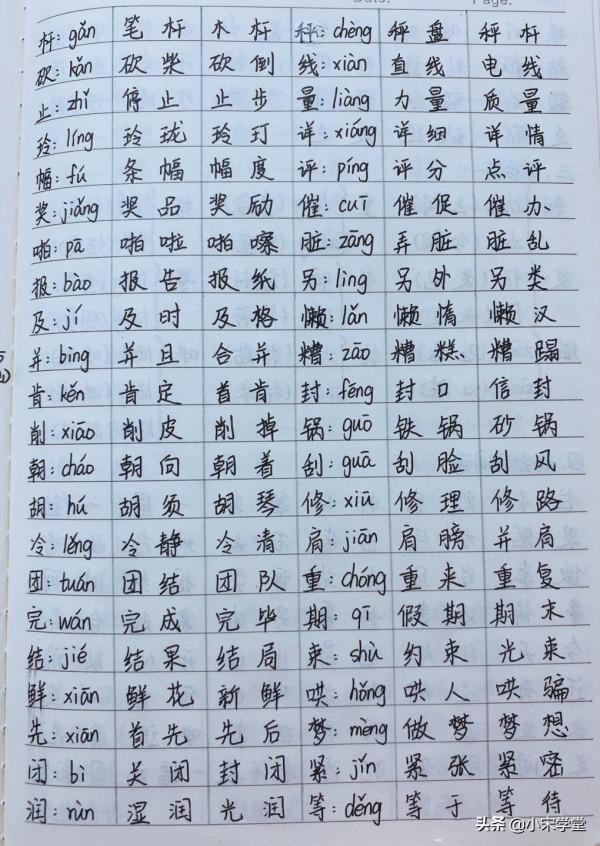 Date: Page:
杆: gǎn 笔杆 木杆 秤: chèng 秤盘 秤杆
砍: kǎn 砍柴 砍倒 线: xiàn 直线 电线
止: zhǐ 停止 止步 量: liàng 力量 质量
玲: líng 玲珑 玲玎 详: xiáng 详细 详情
幅: fú 条幅 幅度 评: píng 评分 点评
奖: jiǎng 奖品 奖励 催: cuī 催促 催办
啪: pā 啪啦 啪嚓 脏: zāng 弄脏 脏乱
报: bào 报告 报纸 另: lìng 另外 另类
及: jí 及时 及格 懒: lǎn 懒惰 懒汉
并: bìng 并且 合并 糟: zāo 糟糕 糟蹋
肯: kěn 肯定 首肯 封: fēng 封口 信封
削: xiāo 削皮 削掉 锅: guō 铁锅 砂锅
朝: cháo 朝向 朝着 刮: guā 刮脸 刮风
胡: hú 胡须 胡琴 修: xiū 修理 修路
冷: lěng 冷静 冷清 肩: jiān 肩膀 并肩
团: tuán 团结 团队 重: chóng 重来 重复
完: wán 完成 完毕 期: qī 假期 期末
结: jié 结果 结局 束: shù 约束 光束
鲜: xiān 鲜花 新鲜 哄: hǒng 哄人 哄骗
先: xiān 首先 先后 梦: mèng 做梦 梦想
闭: bì 关闭 封闭 紧: jǐn 紧张 紧密
润: rùn 湿润 光润 等: děng 等于 等待
头条 @小宋学堂